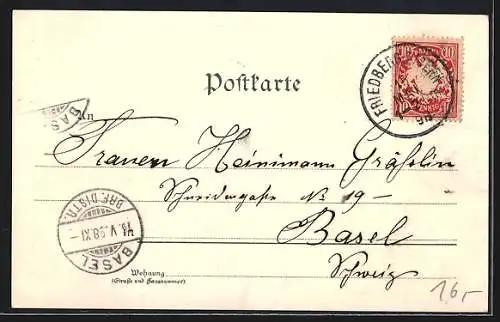 Postkarte
FRIEDBERG
10
BAS
An
Frauen Heinimann Gräflin
Schneidergasse No 19 -
BRF. DISTR.
16. V. 98. XI -
BASEL
Basel
Schweiz
Wohnung
(Straße und Hausnummer)
16,-